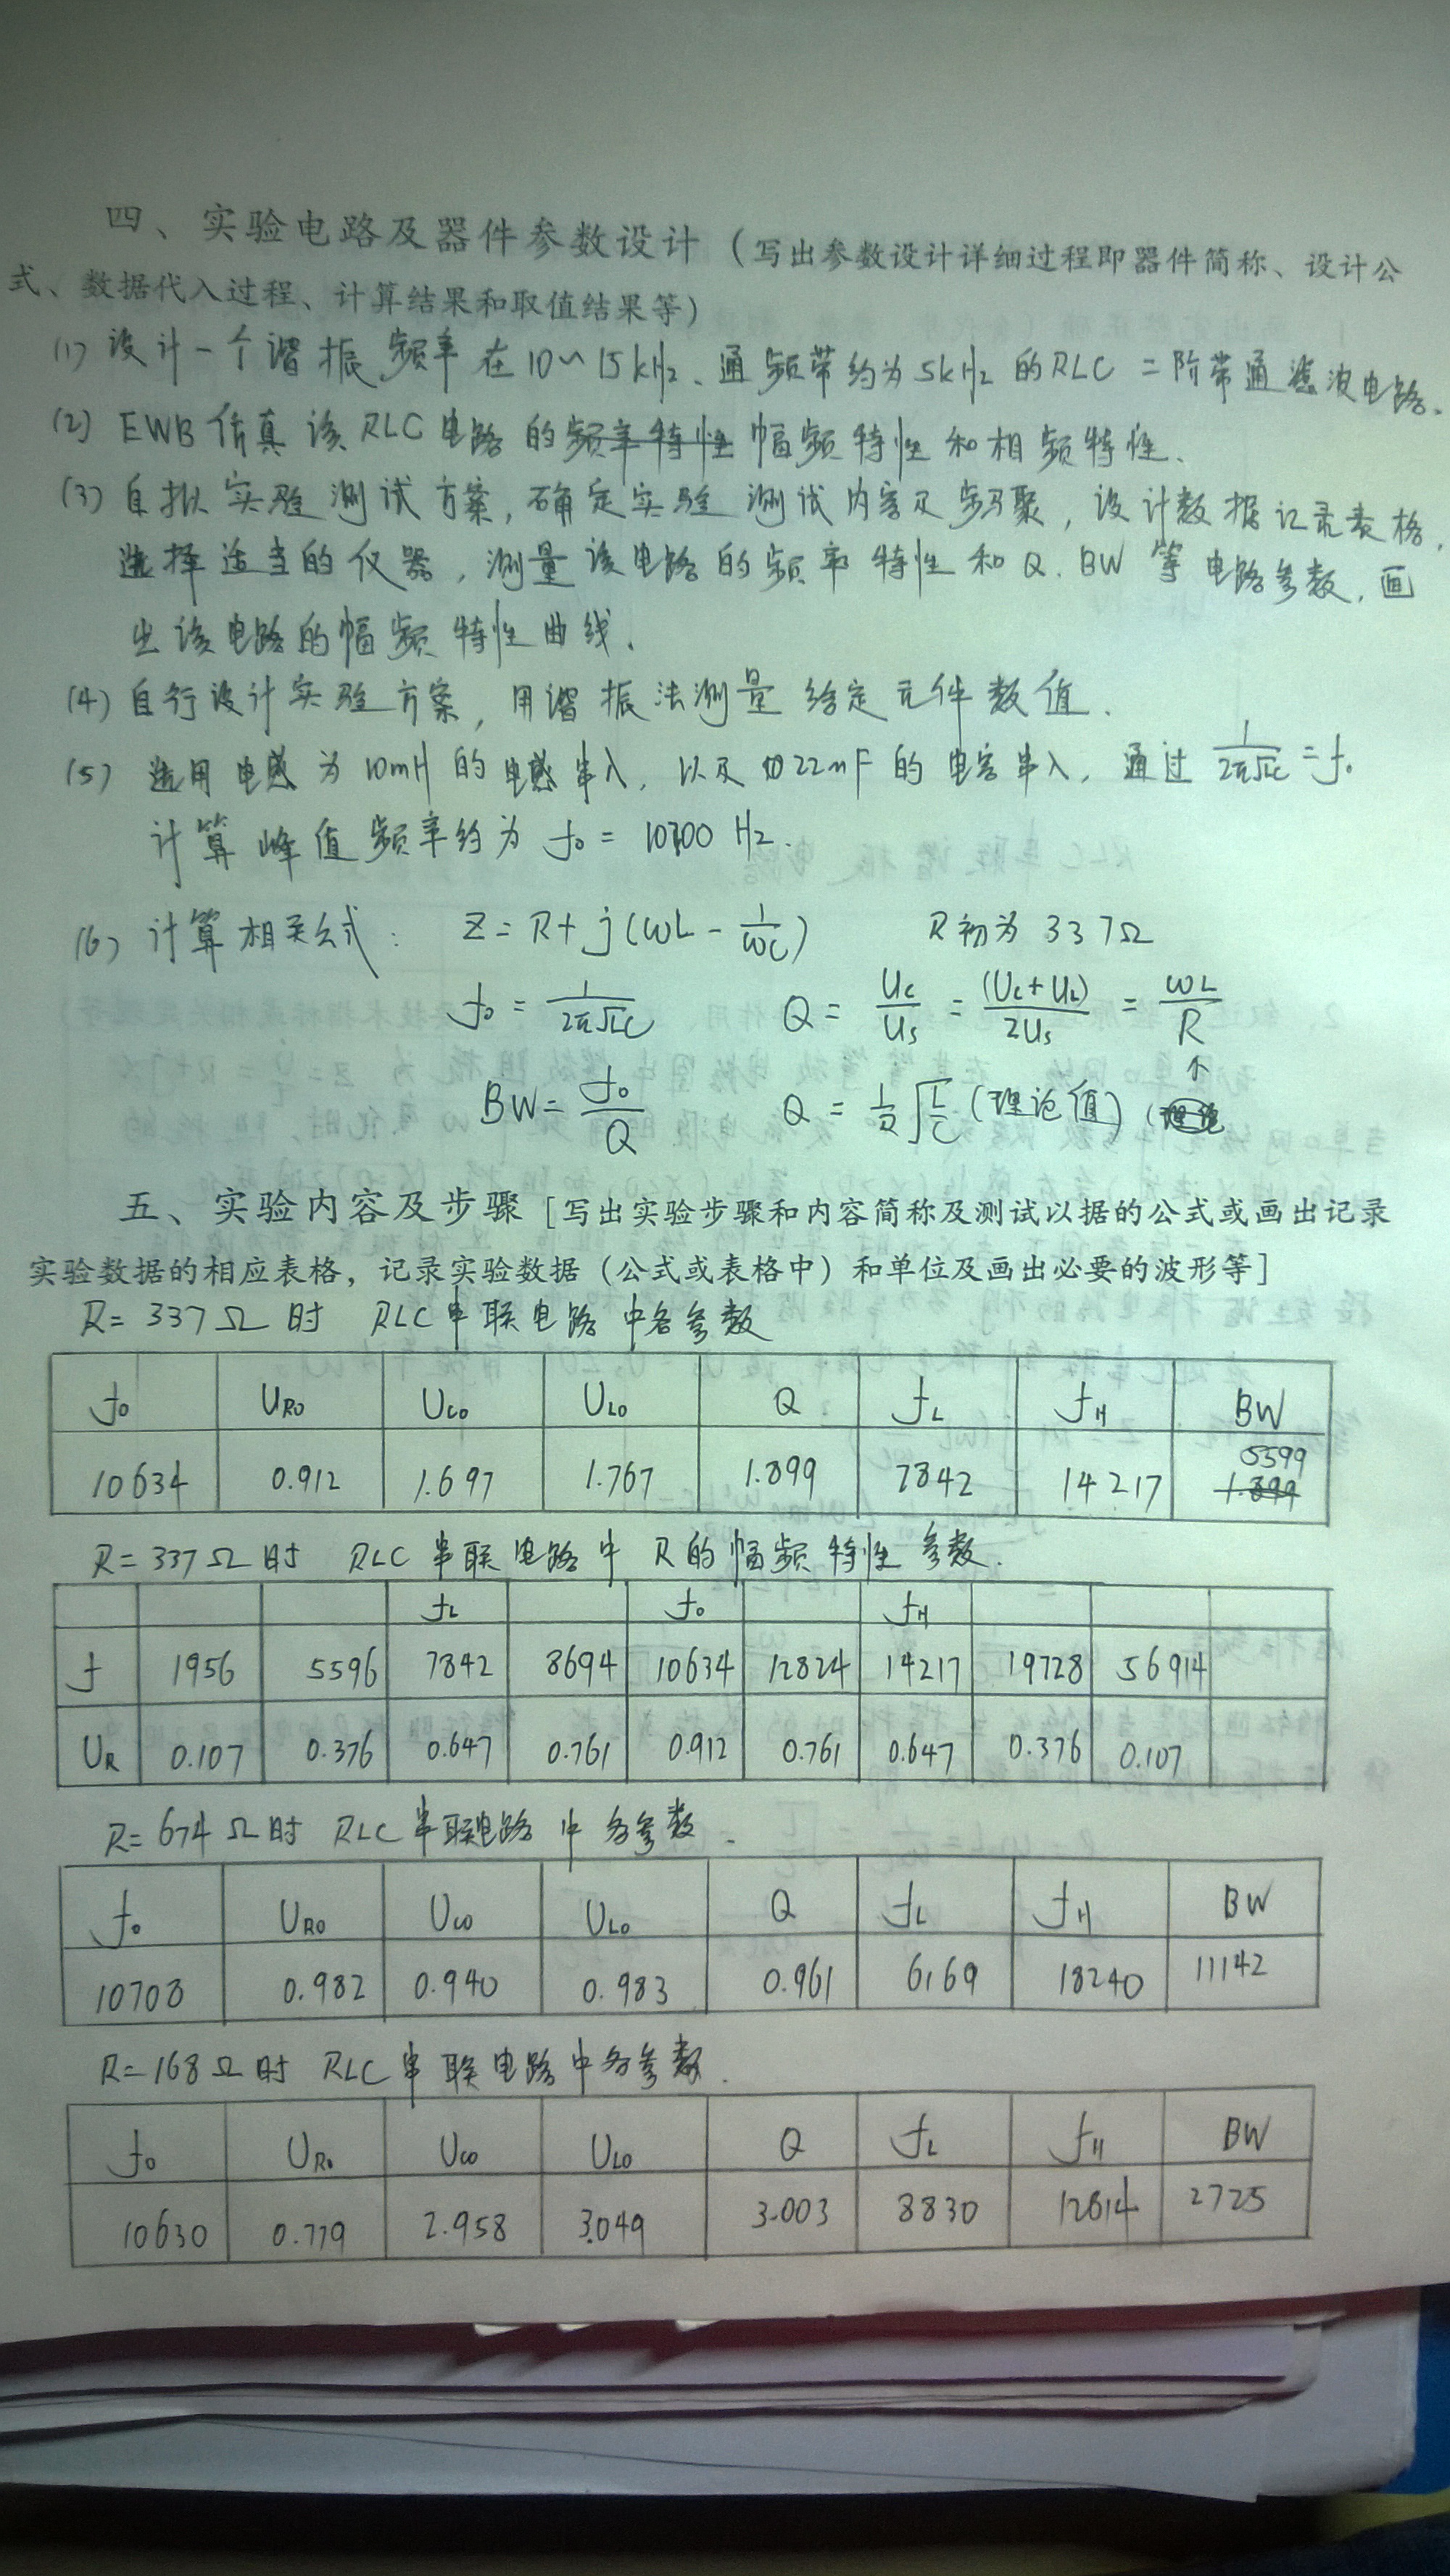 四、实验电路及器件参数设计（写出参数设计详细过程即器件简称、设计公
式、数据代入过程、计算结果和取值结果等）
(1) 设计一个谐振频率在10~15kHz、通频带约为5kHz的RLC二阶带通滤波电路.
(2) EWB仿真该RLC电路的频率特性幅频特性和相频特性.
(3) 自拟实验测试方案,确定实验测试内容及步骤,设计数据记录表格,
选择适当的仪器,测量该电路的频率特性和Q、BW等电路参数,画
出该电路的幅频特性曲线.
(4) 自行设计实验方案,用谐振法测量给定元件数值.
(5) 选用电感为10mH的电感串入,以及22nF的电容串入,通过 1/(2π√LC) = f₀
计算峰值频率约为 f₀ = 10700 Hz.
(6) 计算相关公式: Z = R + j(ωL - 1/ωC) R初为337Ω
f₀ = 1/(2π√LC) Q = Uc/Us = (Uc+UL)/2Us = ωL/R
BW = f₀/Q Q = 1/R √(L/C) (理论值)
五、实验内容及步骤［写出实验步骤和内容简称及测试以据的公式或画出记录
实验数据的相应表格，记录实验数据（公式或表格中）和单位及画出必要的波形等］
R=337Ω时 RLC串联电路中各参数
f₀ UR0 UC0 UL0 Q fL fH BW
10634 0.912 1.697 1.767 1.899 7842 14217 5599 1.899
R=337Ω时 RLC串联电路中R的幅频特性参数.
fL f₀ fH
f 1956 5596 7842 8694 10634 12824 14217 19728 56914
UR 0.107 0.376 0.647 0.761 0.912 0.761 0.647 0.376 0.107
R=674Ω时 RLC串联电路中各参数.
f₀ UR0 UC0 UL0 Q fL fH BW
10708 0.982 0.940 0.983 0.961 6169 18240 11142
R=168Ω时 RLC串联电路中各参数.
f₀ UR0 UC0 UL0 Q fL fH BW
10630 0.779 2.958 3.049 3.003 8830 12814 2725